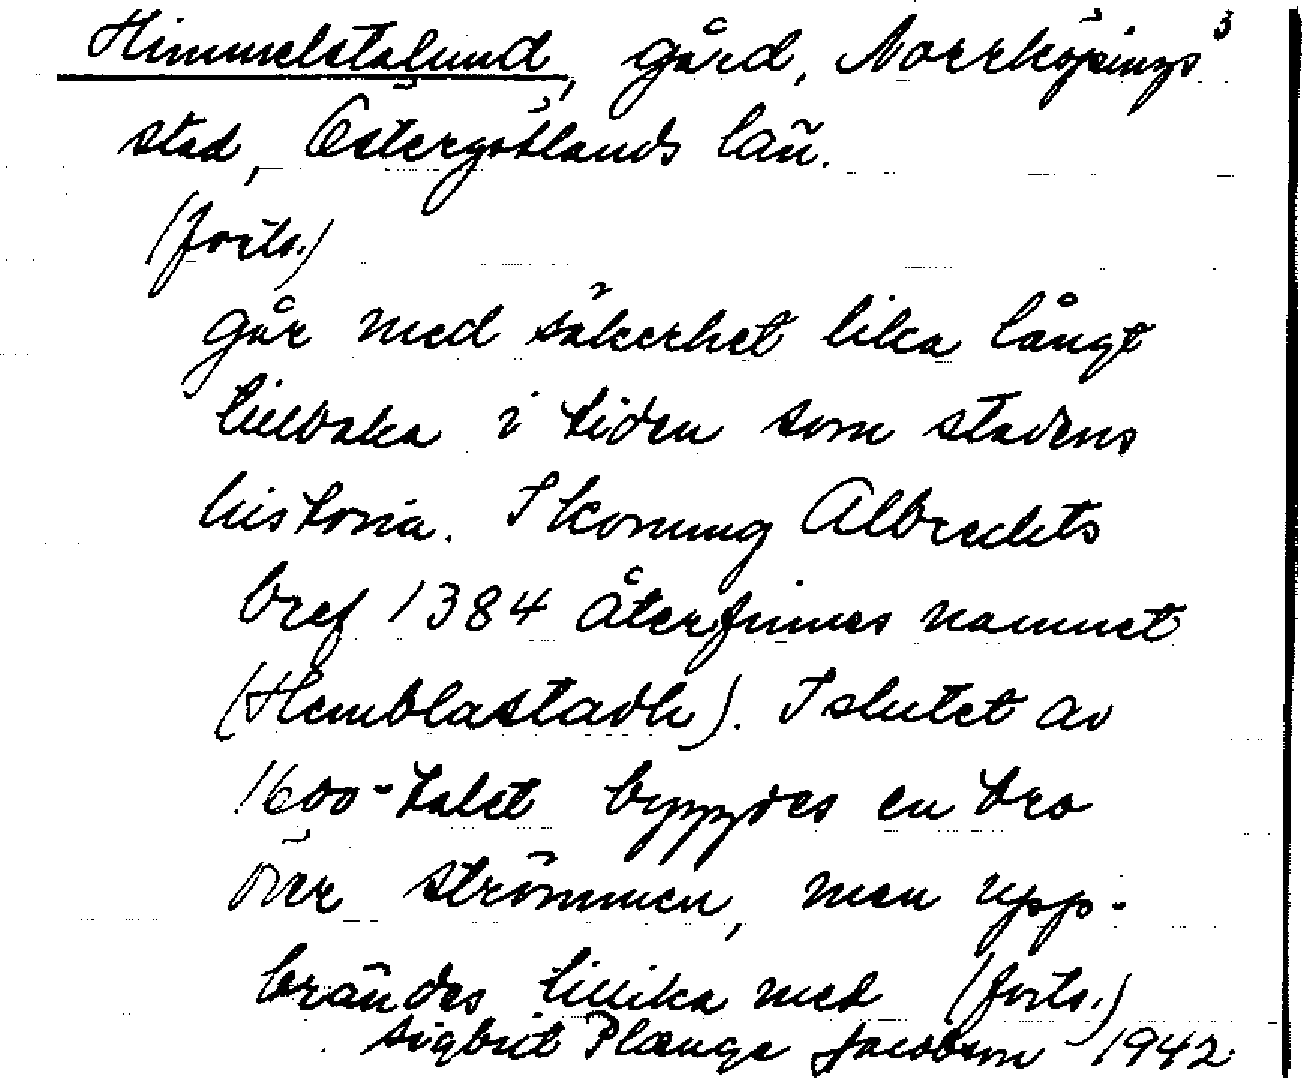 Himmelstalund, gård, Norrköpings 3
stad, Östergötlands län.
(forts.)
går med säkerhet lika långt
tillbaka i tiden som stadens
historia. I konung Albrechts
bref 1384 återfinnes namnet
(Hemblastadh). I slutet av
1600-talet byggdes en bro
över strömmen, men upp-
brändes tillika med (forts.)
Sigbrit Plænge Jacobson 1942